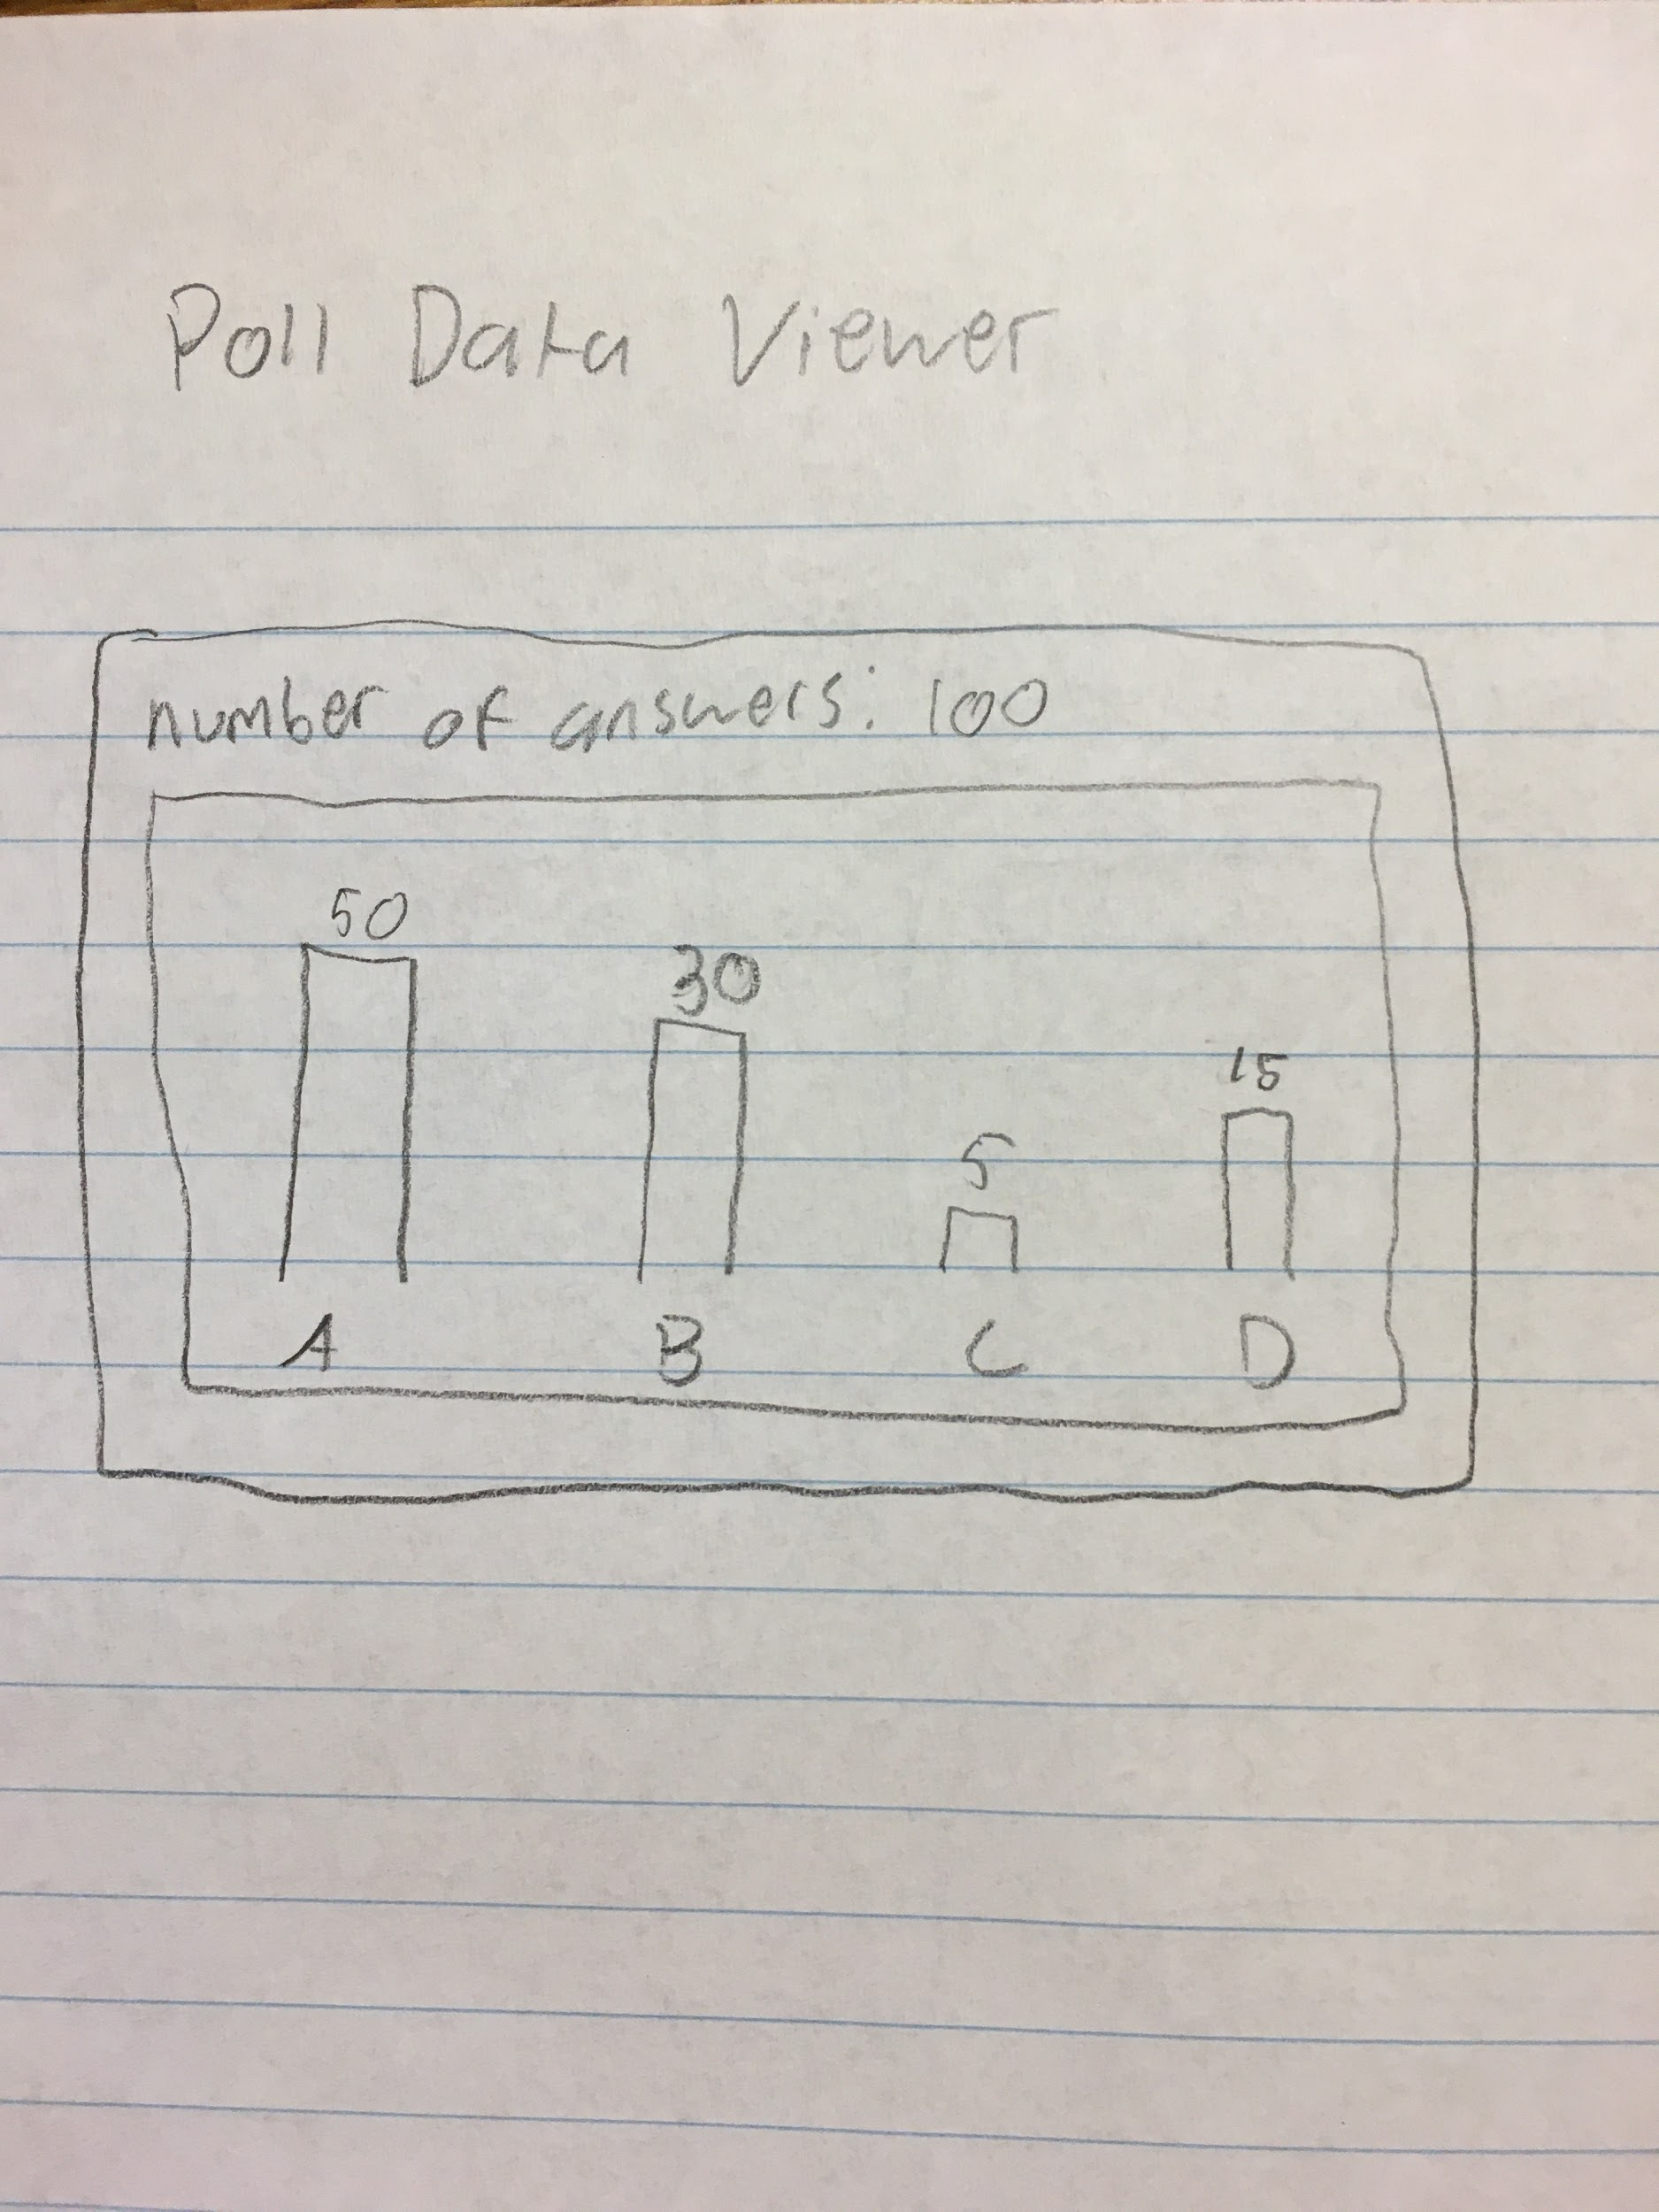 Poll Data Viewer
number of answers: 100
50
30
15
5
A B C D